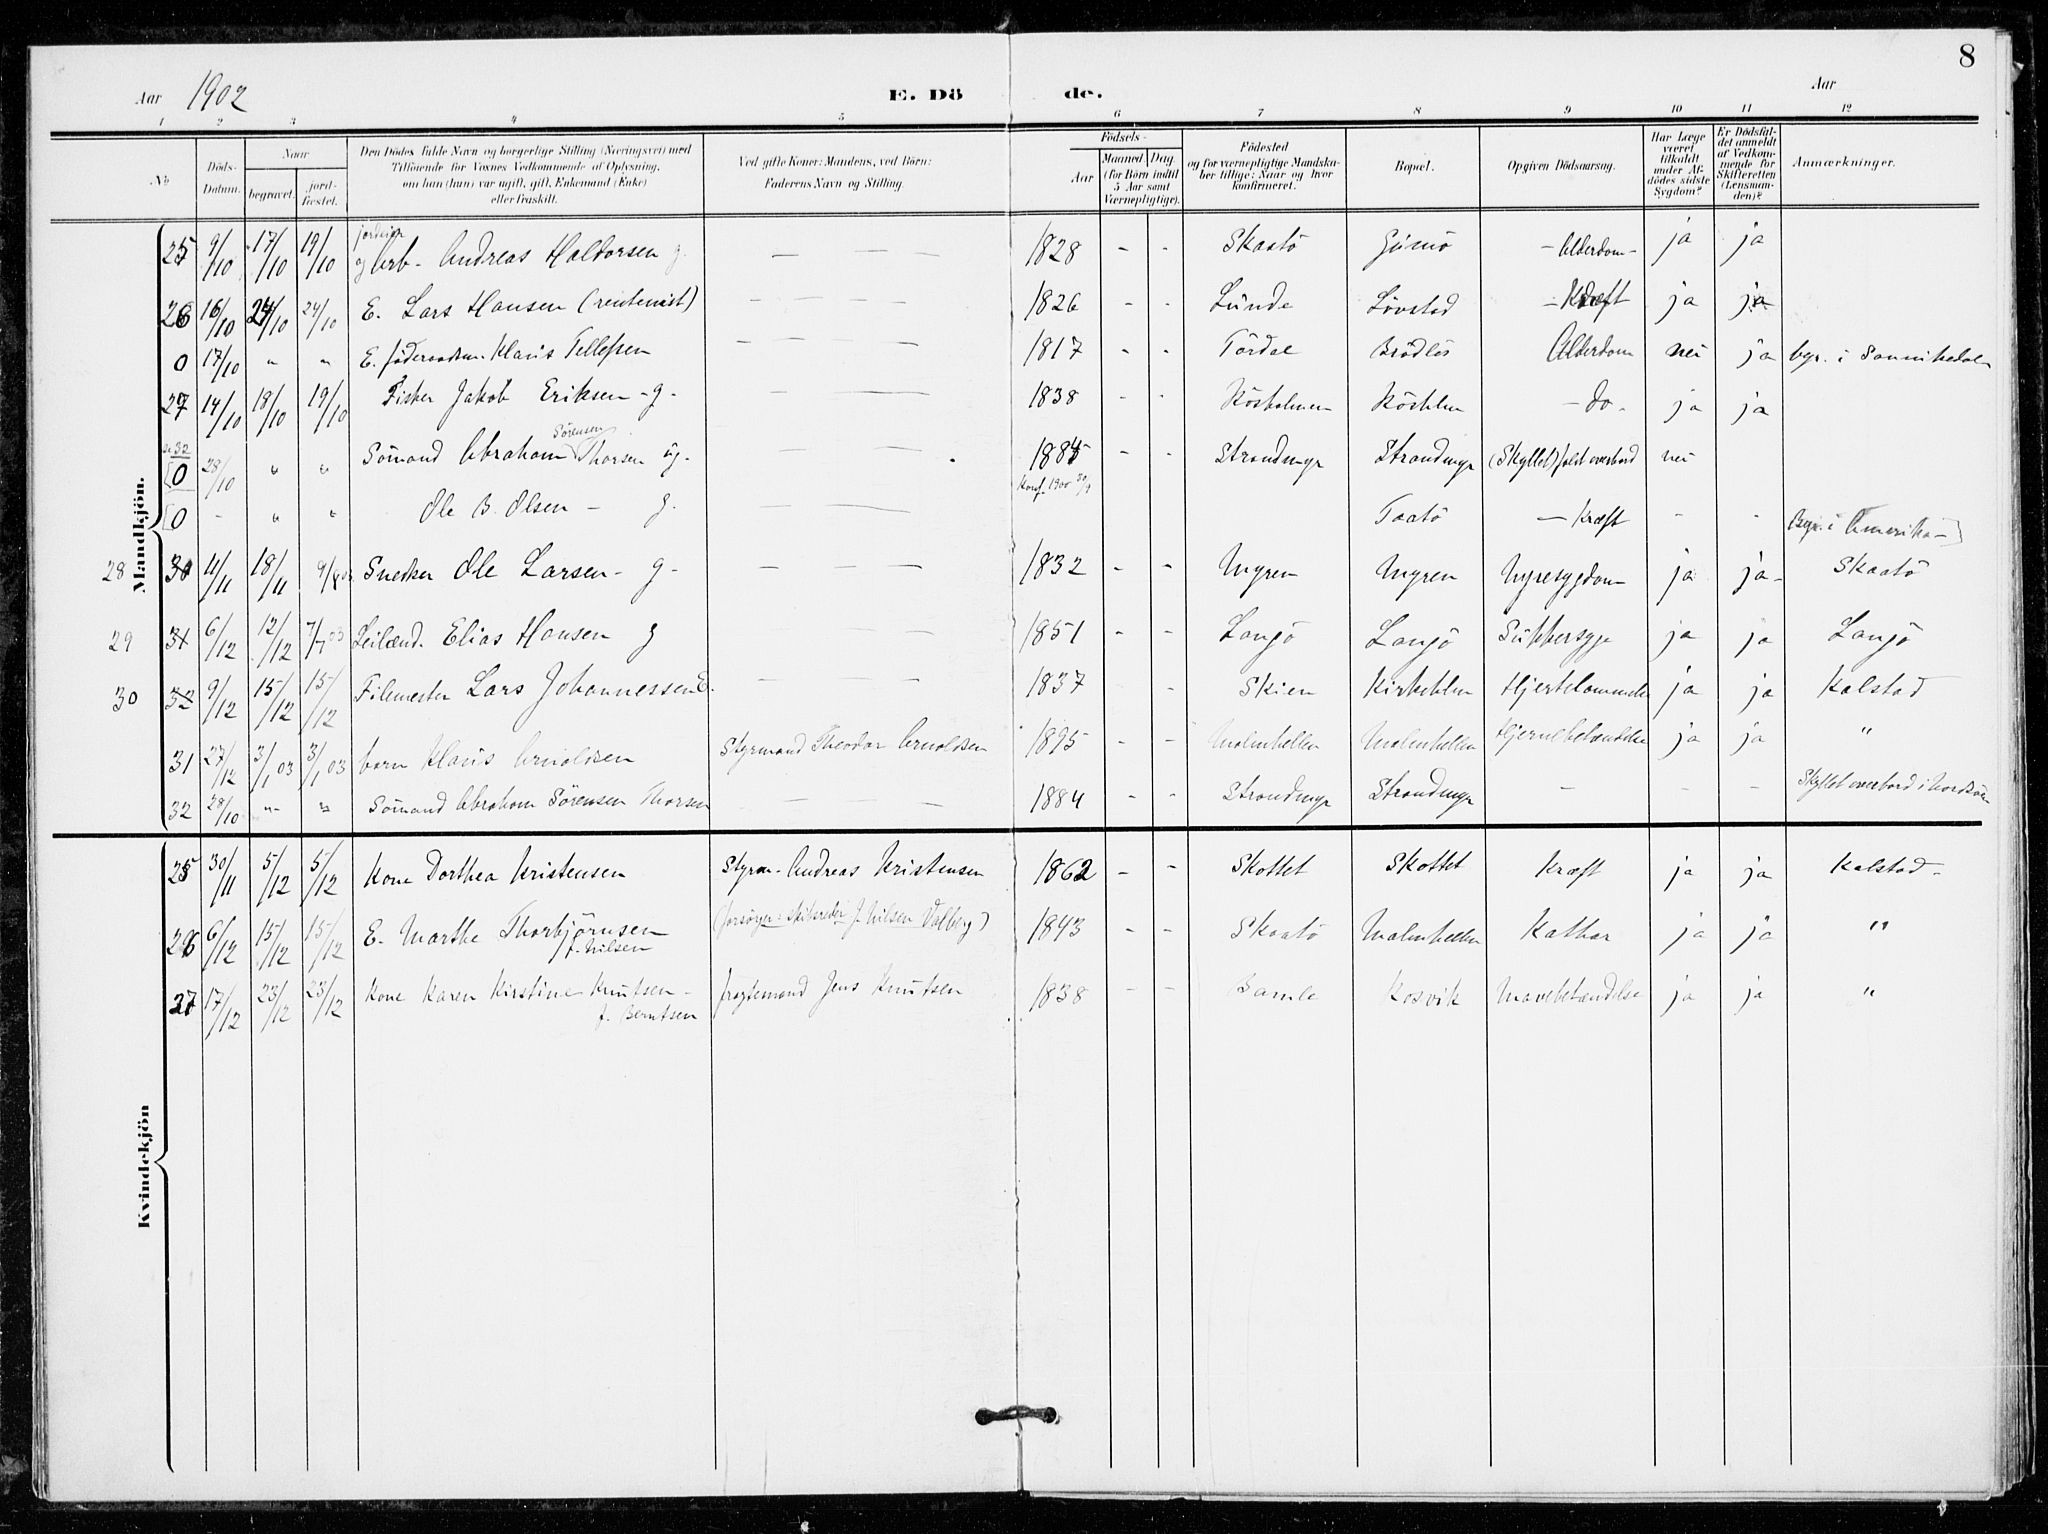 8
Aar 1902 E. Dö de. Aar
1 2 3 4 5 6 7 8 9 10 11 12
No Döds-Datum. Naar begravet. jord-fæstet. Den Dödes fulde Navn og borgerlige Stilling (Næringsvei) med Tilföiende for Voxnes Vedkommende af Oplysning, om han (hun) var ugift, gift, Enkemand (Enke) eller fraskilt. Ved gifte Koner: Mandens, ved Börn: Faderens Navn og Stilling. Födsels- Aar Maaned Dag. (for Börn indtil 5 Aar samt Værnepligtige). Födested og for værnepligtige Mandska-ber tillige: Naar og hvor konfirmeret. Bopæl. Opgiven Dödsaarsag. Har Læge været tilkaldt under Af-dödes sidste Sygdom? Er Dödsfal-det anmeldt af Vedkom-mende for Skifteretten (Lensman-den)? Anmærkninger.
Mandkjön.
25 9/10 17/10 19/10 Arb. Andreas Haldorsen g. — — — 1828 - - Skaatö — Alderdom — ja ja
26 16/10 24/10 24/10 E. Lars Hansen (rentenist) — — — 1826 - - Lunde Lövstad — Kræft ja ja
0 17/10 " " E. föderaadsm. Klaus Tellefsen — — — 1817 - - Tördal Brödlös Alderdom nei ja begr. i Sannikedal
27 14/10 18/10 19/10 Fisker Jakob Eriksen - g - — — — 1838 - - Kösholmen — Do. ja ja
se 32
[0 28/10 " " Sömand Abraham Sörensen Thorsen ug. — — — 1884 - - Strandmyr Strandmyr (Skyllet) faldt overbord nei
Konf. 1900 30/9
[0 - " " Ole B. Olsen — g. — — Taatö — Kræft - - Begr. i Amerika —]
28 30 11/11 18/11 Snedker Ole Larsen - g - — — — 1832 - - Myren Myren Nyresygdom ja ja - Skaatö
29 31 6/12 12/12 Leilænd. Elias Hansen g — — — 1851 - - Langö Langö Sukkersyge ja ja Langö
30 32 9/12 15/12 15/12 Filemester Lars Johannessen E. — — — 1837 - Skien Kirkehlm Hjertelammelse ja ja Kalstad
31 27/12 3/1 03 3/1 03 barn Klaus Arnoldsen Styrmand Theodor Arnoldsen 1895 - - Malmhellen Malmhellen Hjernebetændelse ja ja "
32 28/10 " " Sömand Abraham Sörensen Thorsen — — — 1884 - - Strandmyr Strandmyr — — — Skyllet overbord i Nordsöen
Kvindekjön
25 30/11 5/12 5/12 Kone Dorthea Kristensen Styrm. Andreas Kristensen 1862 - - Skottet Skottet Kræft ja ja Kalstad -
26 6/12 15/12 15/12 E. Marthe Thorbjörnsen (forsörger: skibsreder J. Nilsen Valberg) 1843 - - Skaatö Malmhellen Kathar ja ja "
f. Nilsen
27 17/12 23/12 23/12 Kone Karen Kirstine Knutsen - fragtemand Jens Knutsen 1838 - - Bamle Kosvik Mavebetændelse ja ja "
f. Berntsen